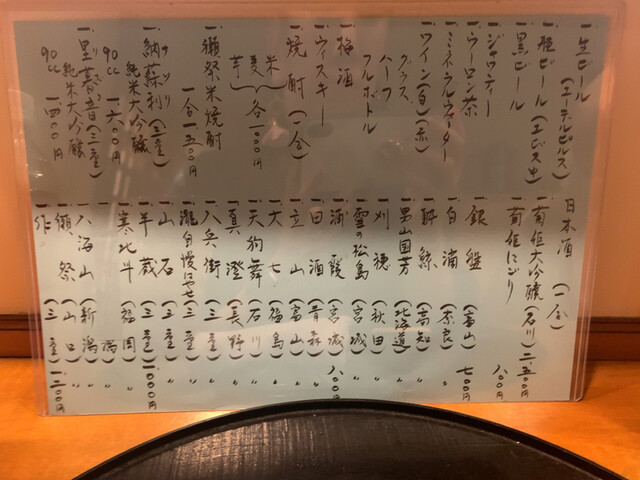 一、生ビール
(ユーデルピルス)
一、瓶ビール(エビス中)
一、黒ビール
一、ジャワティー
一、ウーロン茶
一、ミネラルウォーター
一、ワイン(白)(赤)
グラス
ハーフ
フルボトル
一、梅酒
一、ウィスキー
一、焼酎(一合)
米
麦 各一〇〇〇円
芋
一、獺祭米焼酎
一合一五〇〇円
一、納蘇利(三重)
純米大吟醸
90cc 一六〇〇円
純米大吟醸
90cc 一四〇〇円
日本酒(一合)
一、菊姫大吟醸(石川)二五〇〇円
一、菊姫にごり 八〇〇円
一、銀盤(富山)七〇〇円
一、白滴(奈良)〃
一、酔鯨(高知)〃
一、男山国芳(北海道)〃
一、刈穂(秋田)〃
一、雪の松島(宮城)〃
一、浦霞(宮城)八〇〇円
一、田酒(青森)〃
一、立山(富山)〃
一、大七(福島)〃
一、天狗舞(石川)〃
一、真澄(長野)〃
一、八兵衛(三重)〃
一、瀧自慢はやせ(三重)〃
一、山石(三重)〃
一、半蔵(三重)一〇〇〇円
一、寒北斗(福岡)〃
一、八海山(新潟)〃
一、獺祭(山口)〃
一、作(三重)一二〇〇円